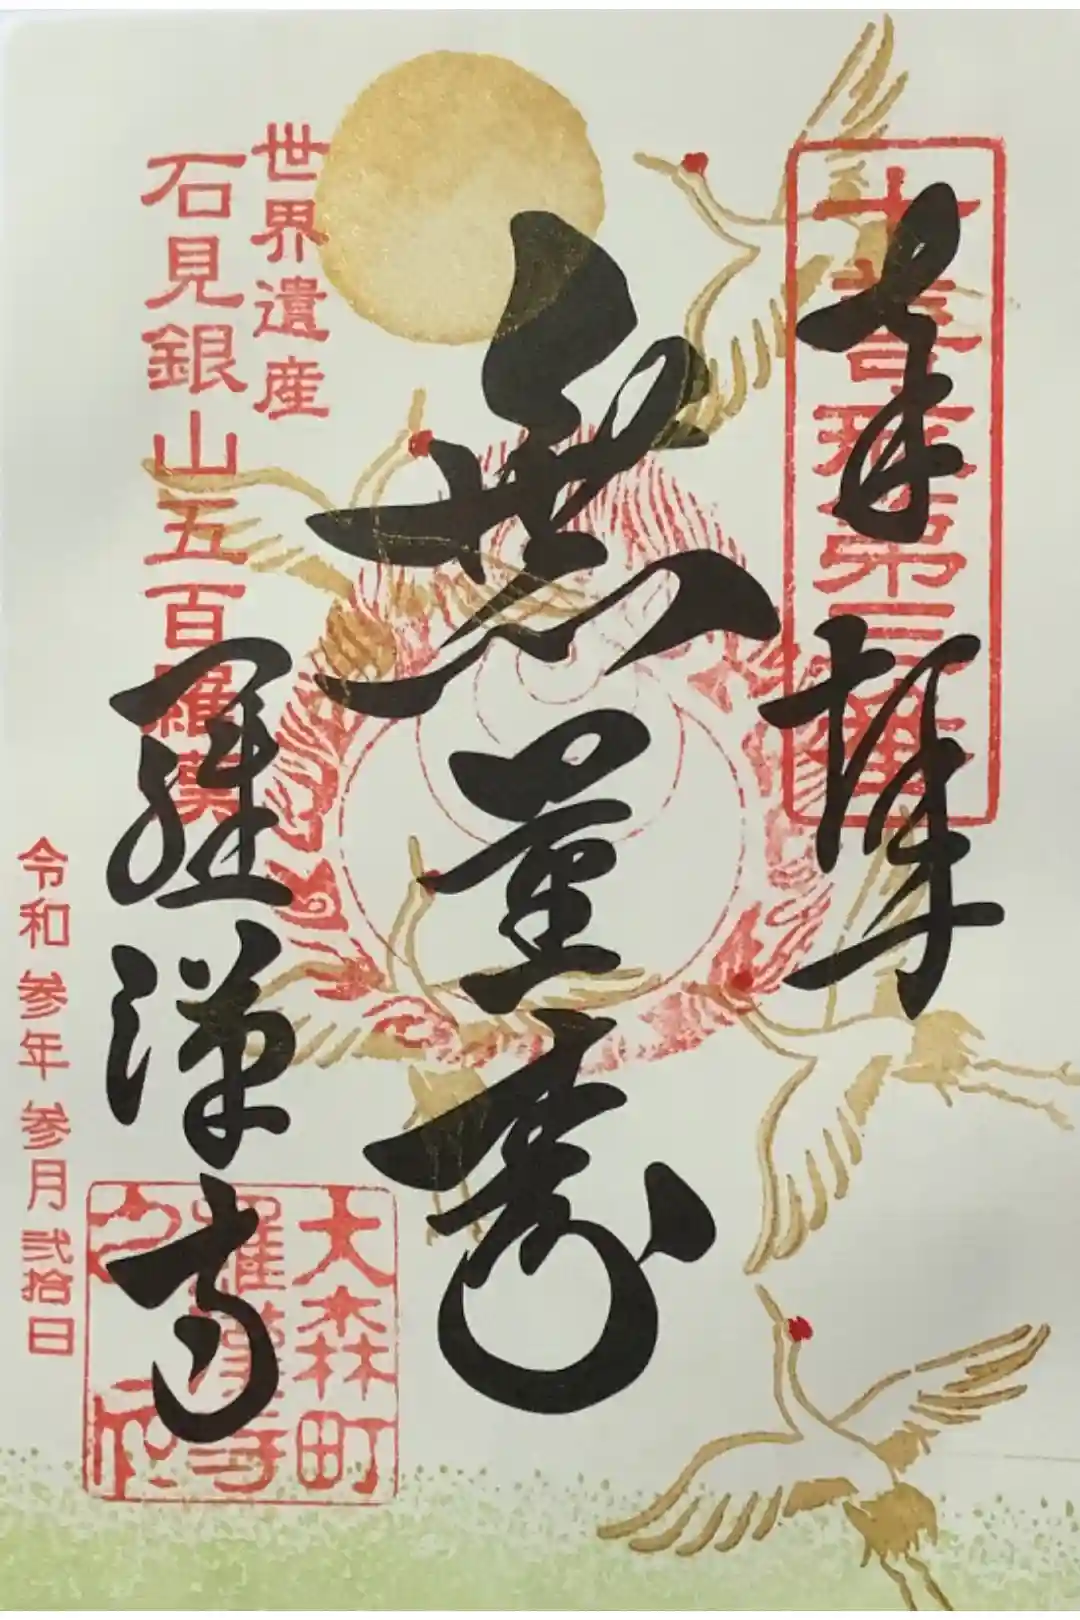 奉拝
無量寿
世界遺産
石見銀山五百羅漢
羅漢寺
令和参年参月弐拾日
大森町
羅漢寺
之印